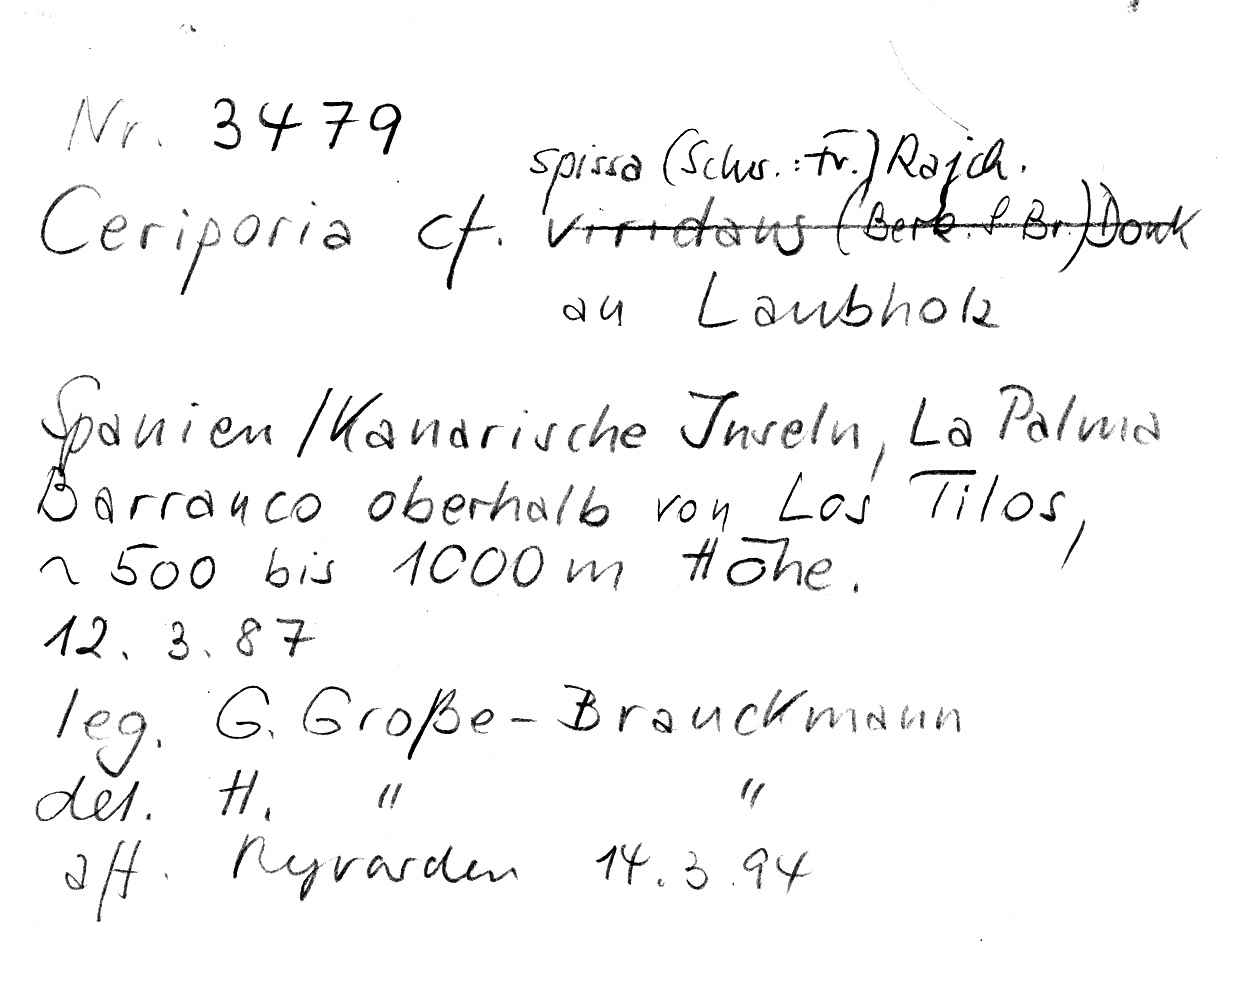 Nr. 3479
spissa (Schw.: Fr.) Rajch.
Ceriporia cf. viridans (Berk. & Br.) Donk
an Laubholz
Spanien/Kanarische Inseln, La Palma
Barranco oberhalb von Los Tilos,
~ 500 bis 1000 m Höhe.
12. 3. 87
leg. G. Große-Brauckmann
det. H. " "
aff. Ryvarden 14.3.94